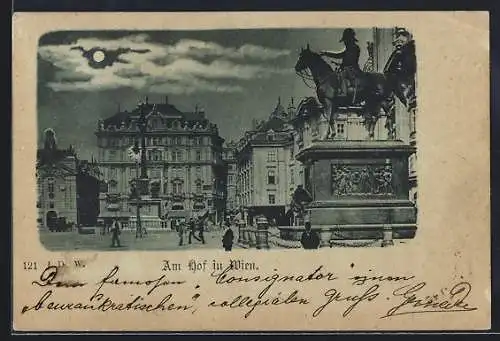 121 J. D. W. Am Hof in Wien.
Dem famosen „Consignator" einen
„Neuraukratischen", collegialen Gruss.